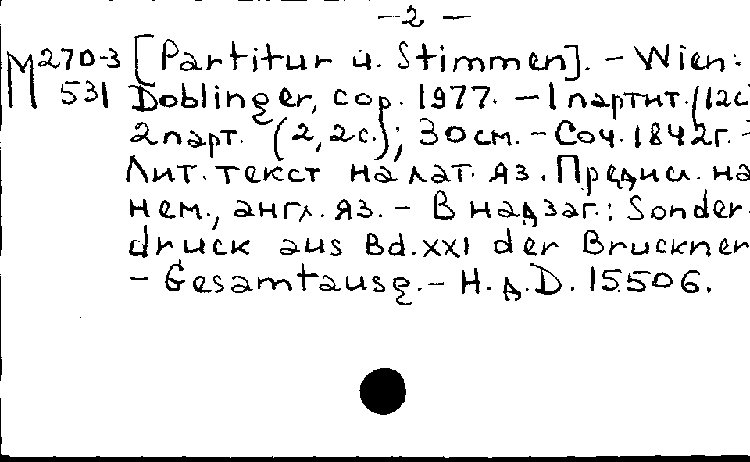 — 2 —
М 270-3 [Partitur u. Stimmen]. – Wien:
531 Doblinger, cop. 1977. – 1 партит. (12с
2 парт. (2, 2с.); 30 см. – Соч. 1842г. –
Лит. текст на лат. яз. Предисл. на
нем., англ. яз. – В надзаг.: Sonder-
druck aus Bd. XXI der Bruckner
– Gesamtausg. – Н. д. D. 15.506.